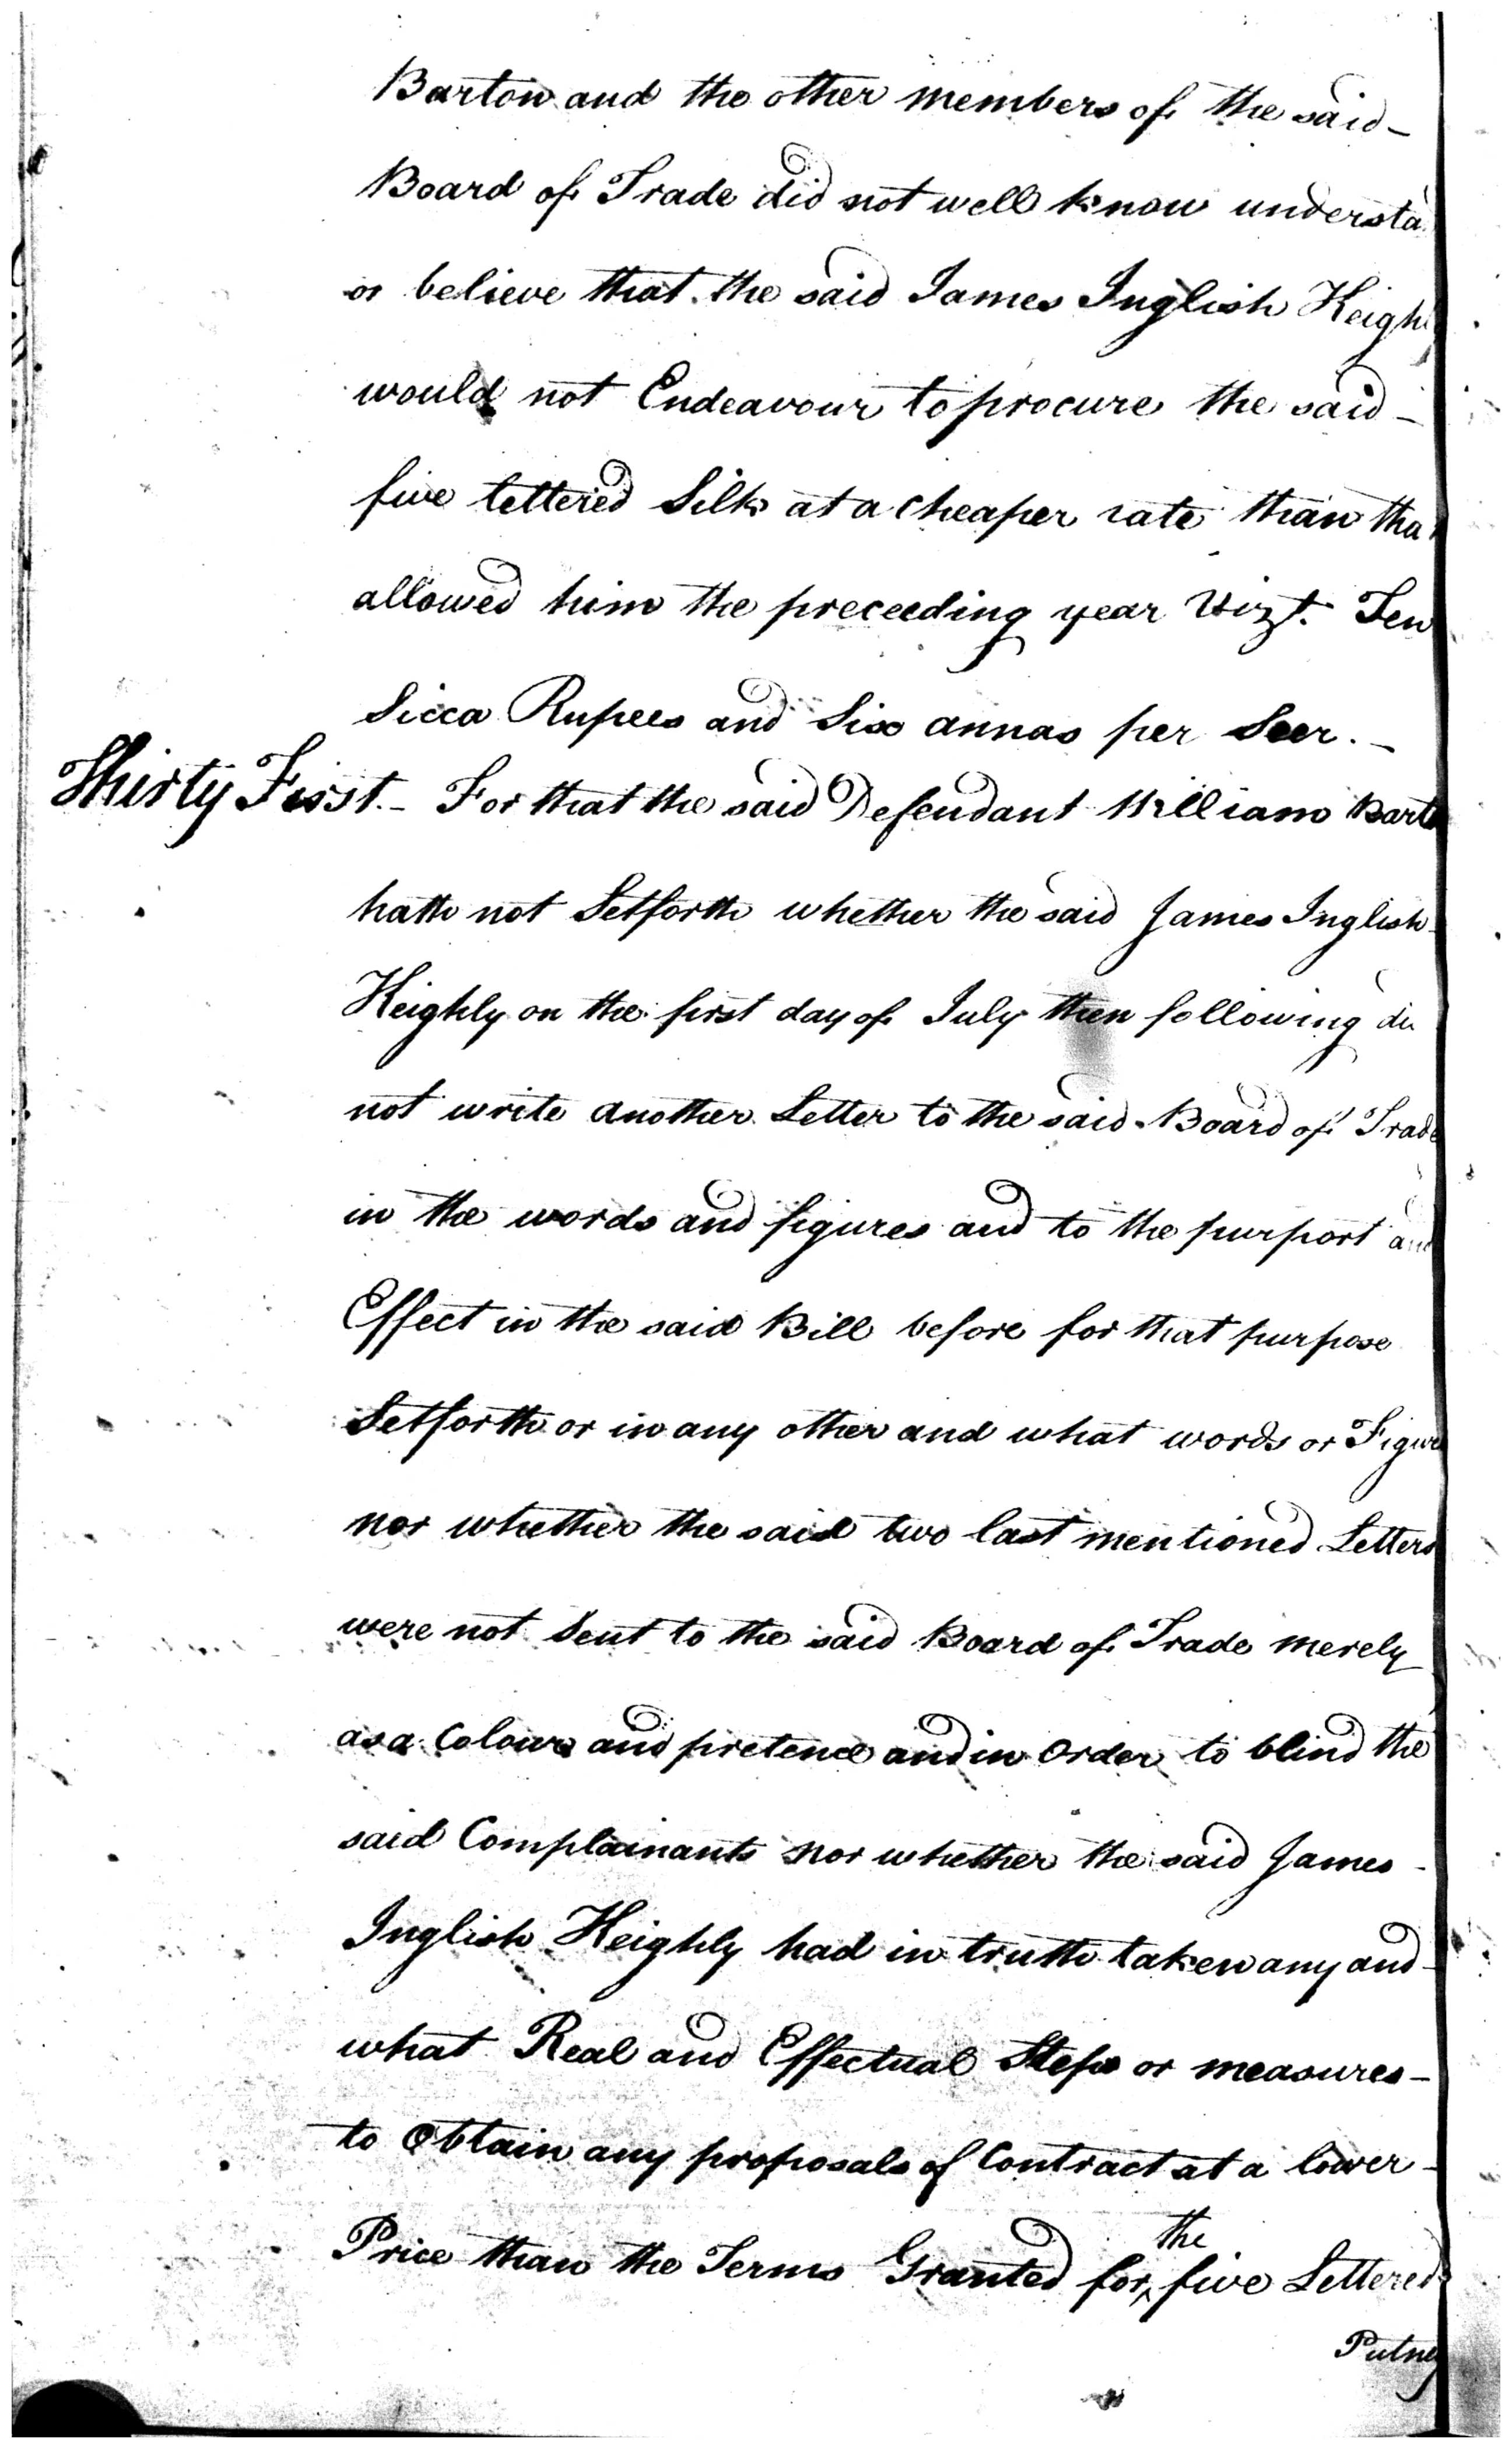 Barton and the other members of the said -
Board of Trade did not well know understa
or believe that the said James Inglish Keigh
would not Endeavour to procure the said -
five lettered Silk at a Cheaper rate than tha
allowed him the preceeding year Vizt. Ten
Sicca Rupees and Six annas per Seer. -
Thirty First. - For that the said Defendant William Barto
hath not Setforth whether the said James Inglish
Keighly on the first day of July then following di
not write another Letter to the said Board of Trade
in the words and figures and to the purport and
Effect in the said Bill before for that purpose
Setforth or in any other and what words or Figure
nor whether the said two last mentioned Letters
were not Sent to the said Board of Trade merely
as a Colour and pretence and in Order to blind the
said Complainants nor whether the said James -
Inglish Keighly had in truth taken any and -
what Real and Effectual Steps or measures -
to Obtain any proposals of Contract at a lower -
Price than the Terms Granted for the five Lettered
Putney